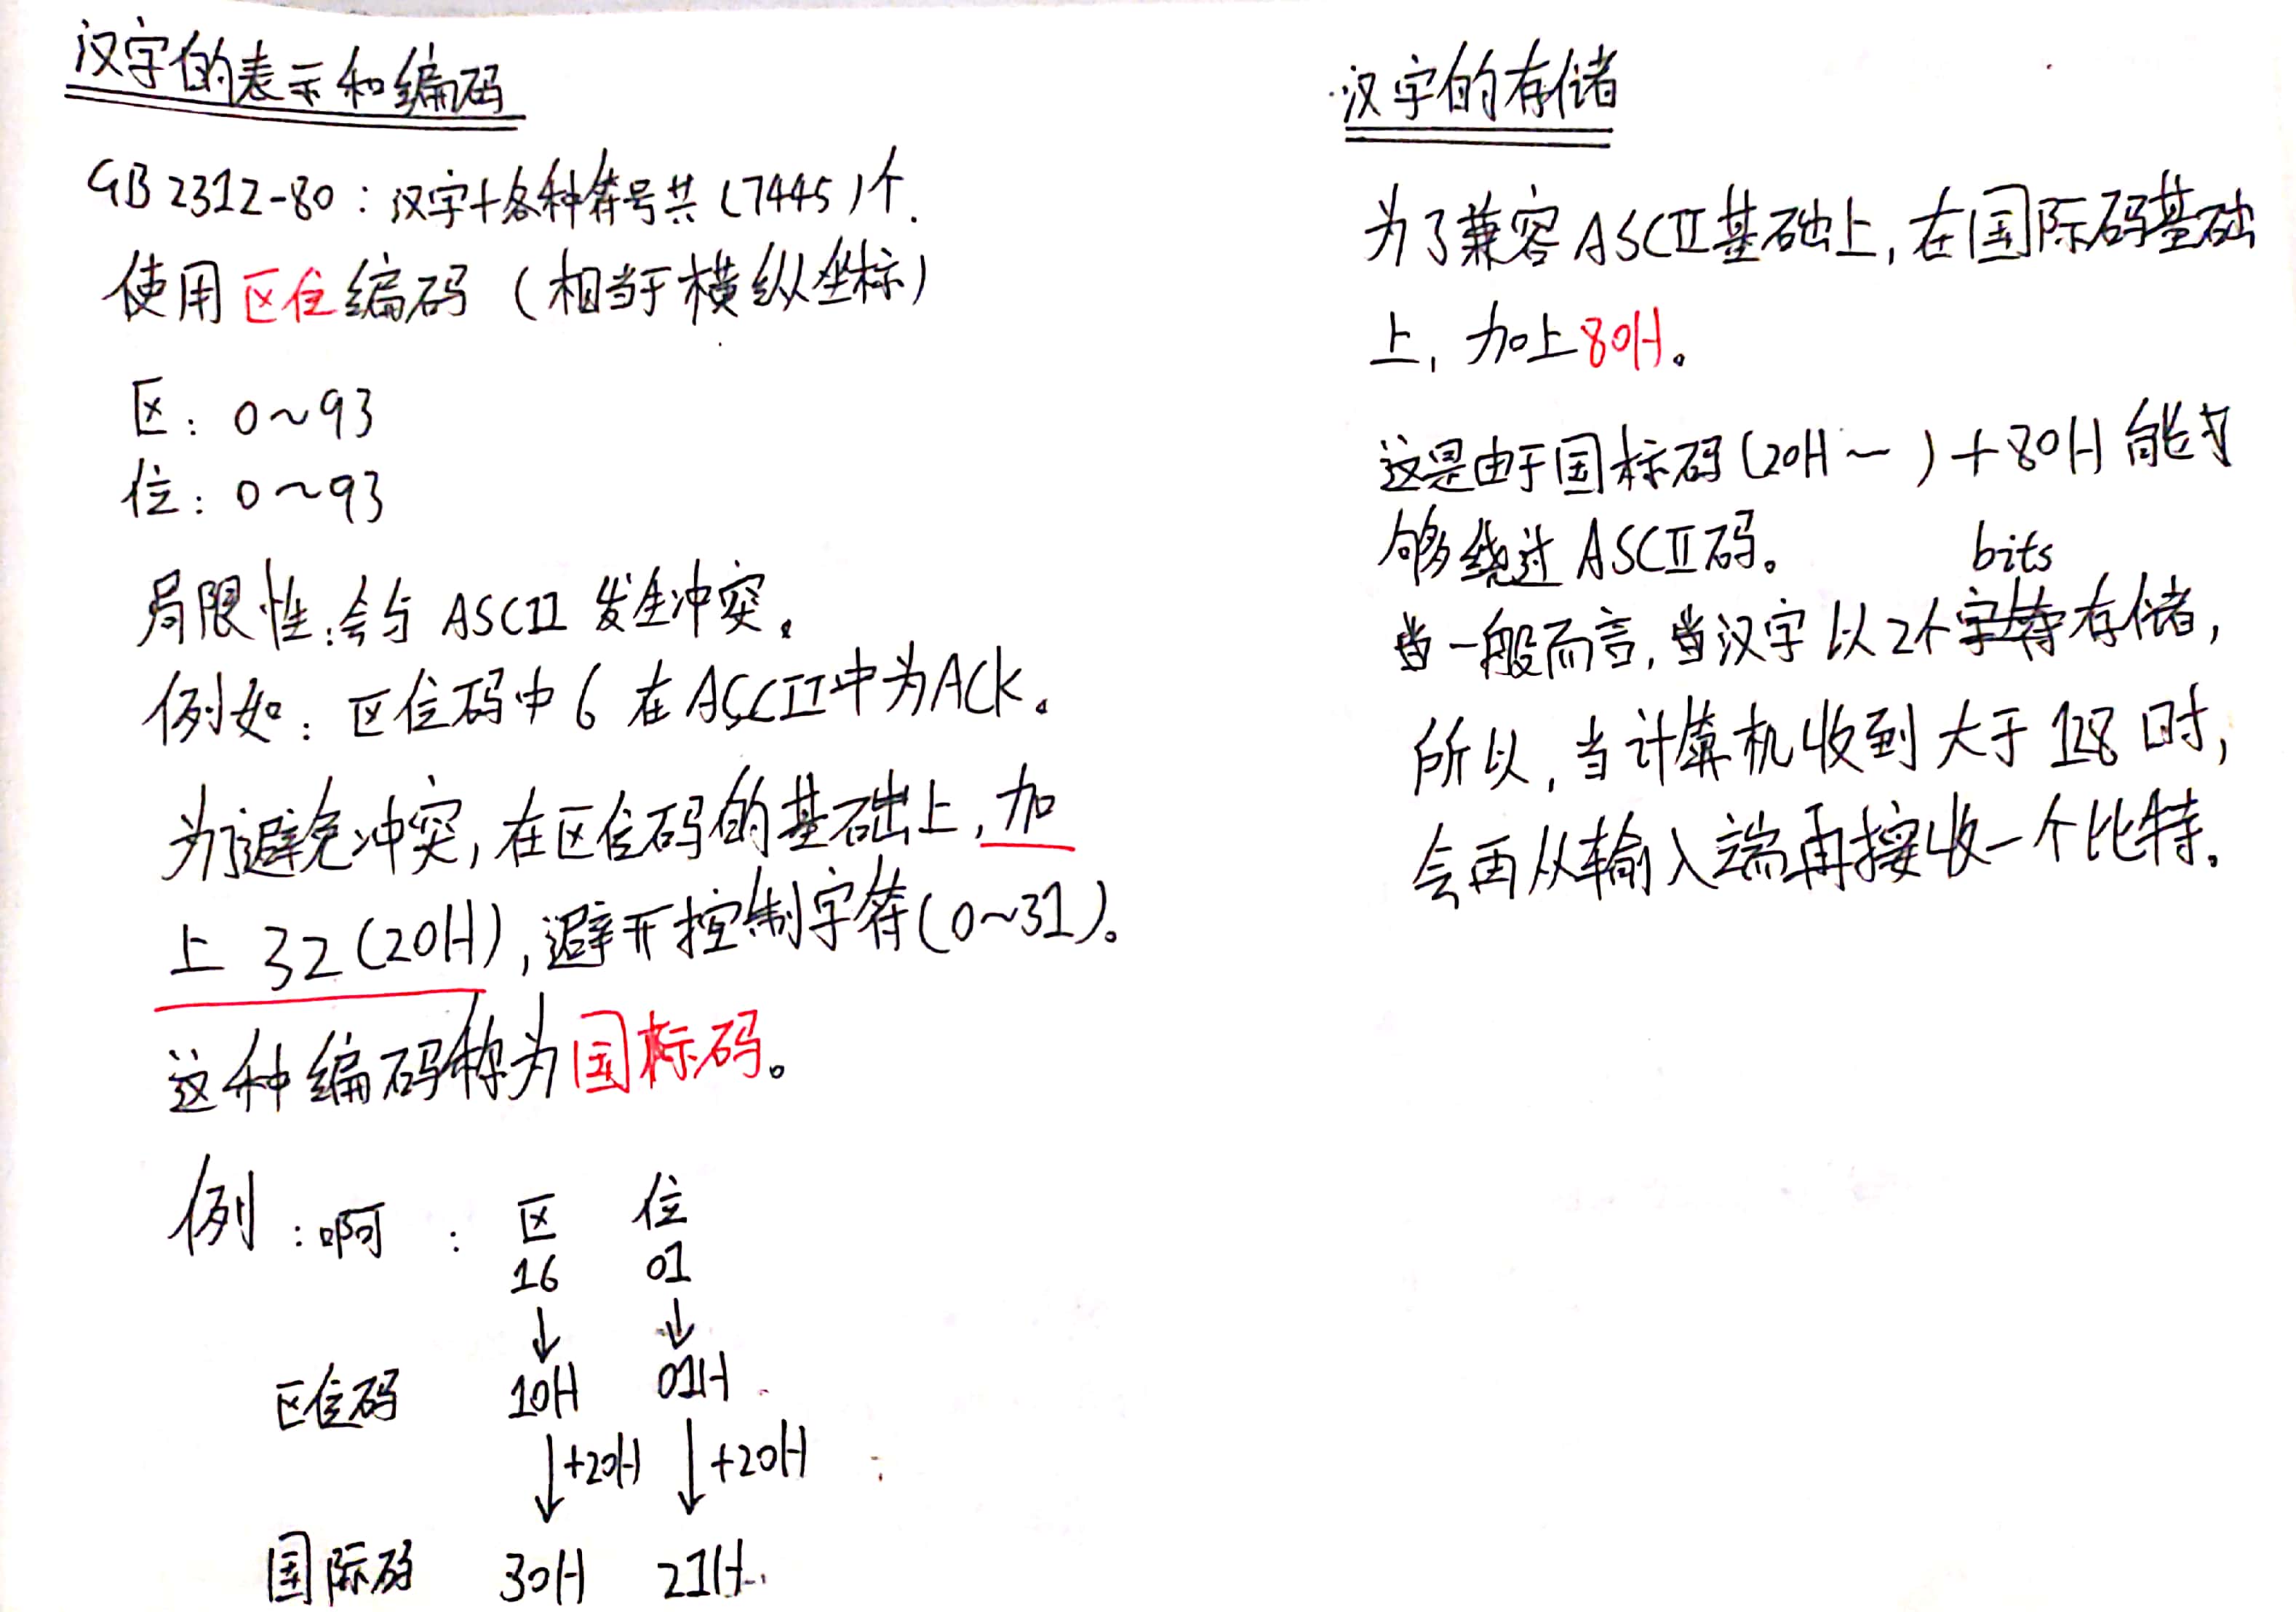 汉字的表示和编码
GB2312-80：汉字+各种符号共(7445)个.
使用区位编码（相当于横纵坐标）
区：0~93
位：0~93
局限性：会与 ASCII 发生冲突。
例如：区位码中 6 在 ASCII中为ACK。
为了避免冲突,在区位码的基础上,加
上 32(20H),避开控制字符(0~31)。
这种编码称为国标码。
例：啊：区 位
16 01
↓ ↓
区位码 10H 01H
↓+20H ↓+20H
国际码 30H 21H
汉字的存储
为了兼容ASCII基础上,在国际码基础
上,加上80H。
这是由于国标码(20H~ )+80H 能
够绕过 ASCII码。
bits
一般而言,当汉字以2个字符存储,
所以,当计算机收到大于128时,
会再从输入端再接收一个比特.